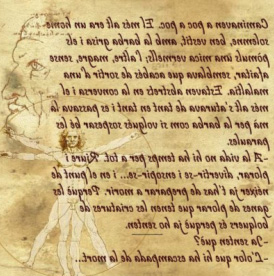 Caminaven a poc a poc. El més alt era un home
solemne, ben vestit, amb la barba grisa i els
pòmuls una mica vermells; l'altre, magre, sense
afaitar, semblava que acabés de sortir d'una
malaltia. Estaven abstrets en la conversa i el
més alt s'aturava de tant en tant i es passava la
mà per la barba com si volgués sospesar bé les
paraules.
-A la vida no hi ha temps per a tot. Riure i
plorar, divertir-se i despedir-se... i en el punt de
néixer ja t'has de preparar a morir. Les
ganes de plorar que tenen les criatures de
bolquers és perquè ja ho senten.
-Ja senten què?
-L'olor que hi ha escampada de la mort...